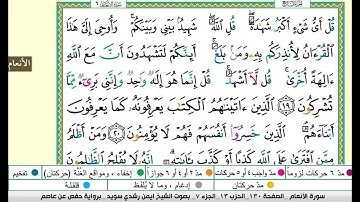 قُلْ أَىُّ شَىْءٍ أَكْبَرُ شَهَٰدَةً قُلِ ٱللَّهُ شَهِيدٌۢ بَيْنِى وَبَيْنَكُمْ وَأُوحِىَ إِلَىَّ هَٰذَا
ٱلْقُرْءَانُ لِأُنذِرَكُم بِهِۦ وَمَنۢ بَلَغَ أَئِنَّكُمْ لَتَشْهَدُونَ أَنَّ مَعَ ٱللَّهِ
الأنعام
ءَالِهَةً أُخْرَىٰ قُل لَّآ أَشْهَدُ قُلْ إِنَّمَا هُوَ إِلَٰهٌ وَٰحِدٌ وَإِنَّنِى بَرِىٓءٌ مِّمَّا
تُشْرِكُونَ ١٩ ٱلَّذِينَ ءَاتَيْنَٰهُمُ ٱلْكِتَٰبَ يَعْرِفُونَهُۥ كَمَا يَعْرِفُونَ
أَبْنَآءَهُمُ ٱلَّذِينَ خَسِرُوٓا۟ أَنفُسَهُمْ فَهُمْ لَا يُؤْمِنُونَ ٢٠ وَمَنْ أَظْلَمُ
مِمَّنِ ٱفْتَرَىٰ عَلَى ٱللَّهِ كَذِبًا أَوْ كَذَّبَ إِنَّهُۥ لَا يُفْلِحُ ٱلظَّٰلِمُونَ
مدّ ٦ حركات لزوماً مدّ ٢ أو ٤ أو ٦ جوازاً إخفاء، ومواقع الغُنَّة (حركتان) تفخيم
مدّ حركتان إدغام، وما لا يُلفظ قلقلة
سورة الأنعام الصفحة ١٣٠ الحزب ١٣ الجزء ٧ بصوت الشيخ أيمن رشدي سويد برواية حفص عن عاصم